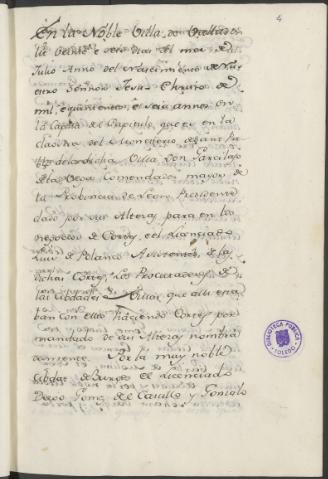 4
En la Noble Villa de Valladolid
la veinte e seis dias del mes de
Julio Anno del Nascimiento de nu
estro Señor Jesu Christo de
mil, equinientos, e seis annos en
la Capilla del Capitulo, que es en la
claostra del Monesterio de San Pa
blo de la dicha Villa Don Garcilaso
de la Vega Comendador mayor de
la Provincia de Leon Presidente
dado por sus Altezas para en los
negocios de Cortes, e el Licenciado
Luis de Polanco Asistentes de las
dichas Cortes, Los Procuradores de
las Ciudades e Villas, que alli esta
van con ellos haciendo Cortes por
mandado de sus Altezas nombra
damente. De la muy noble
Cibdad de Burgos el Licenciado
Diego Gomez del Castillo y Gonzalo
BIBLIOTECA PUBLICA
TOLEDO